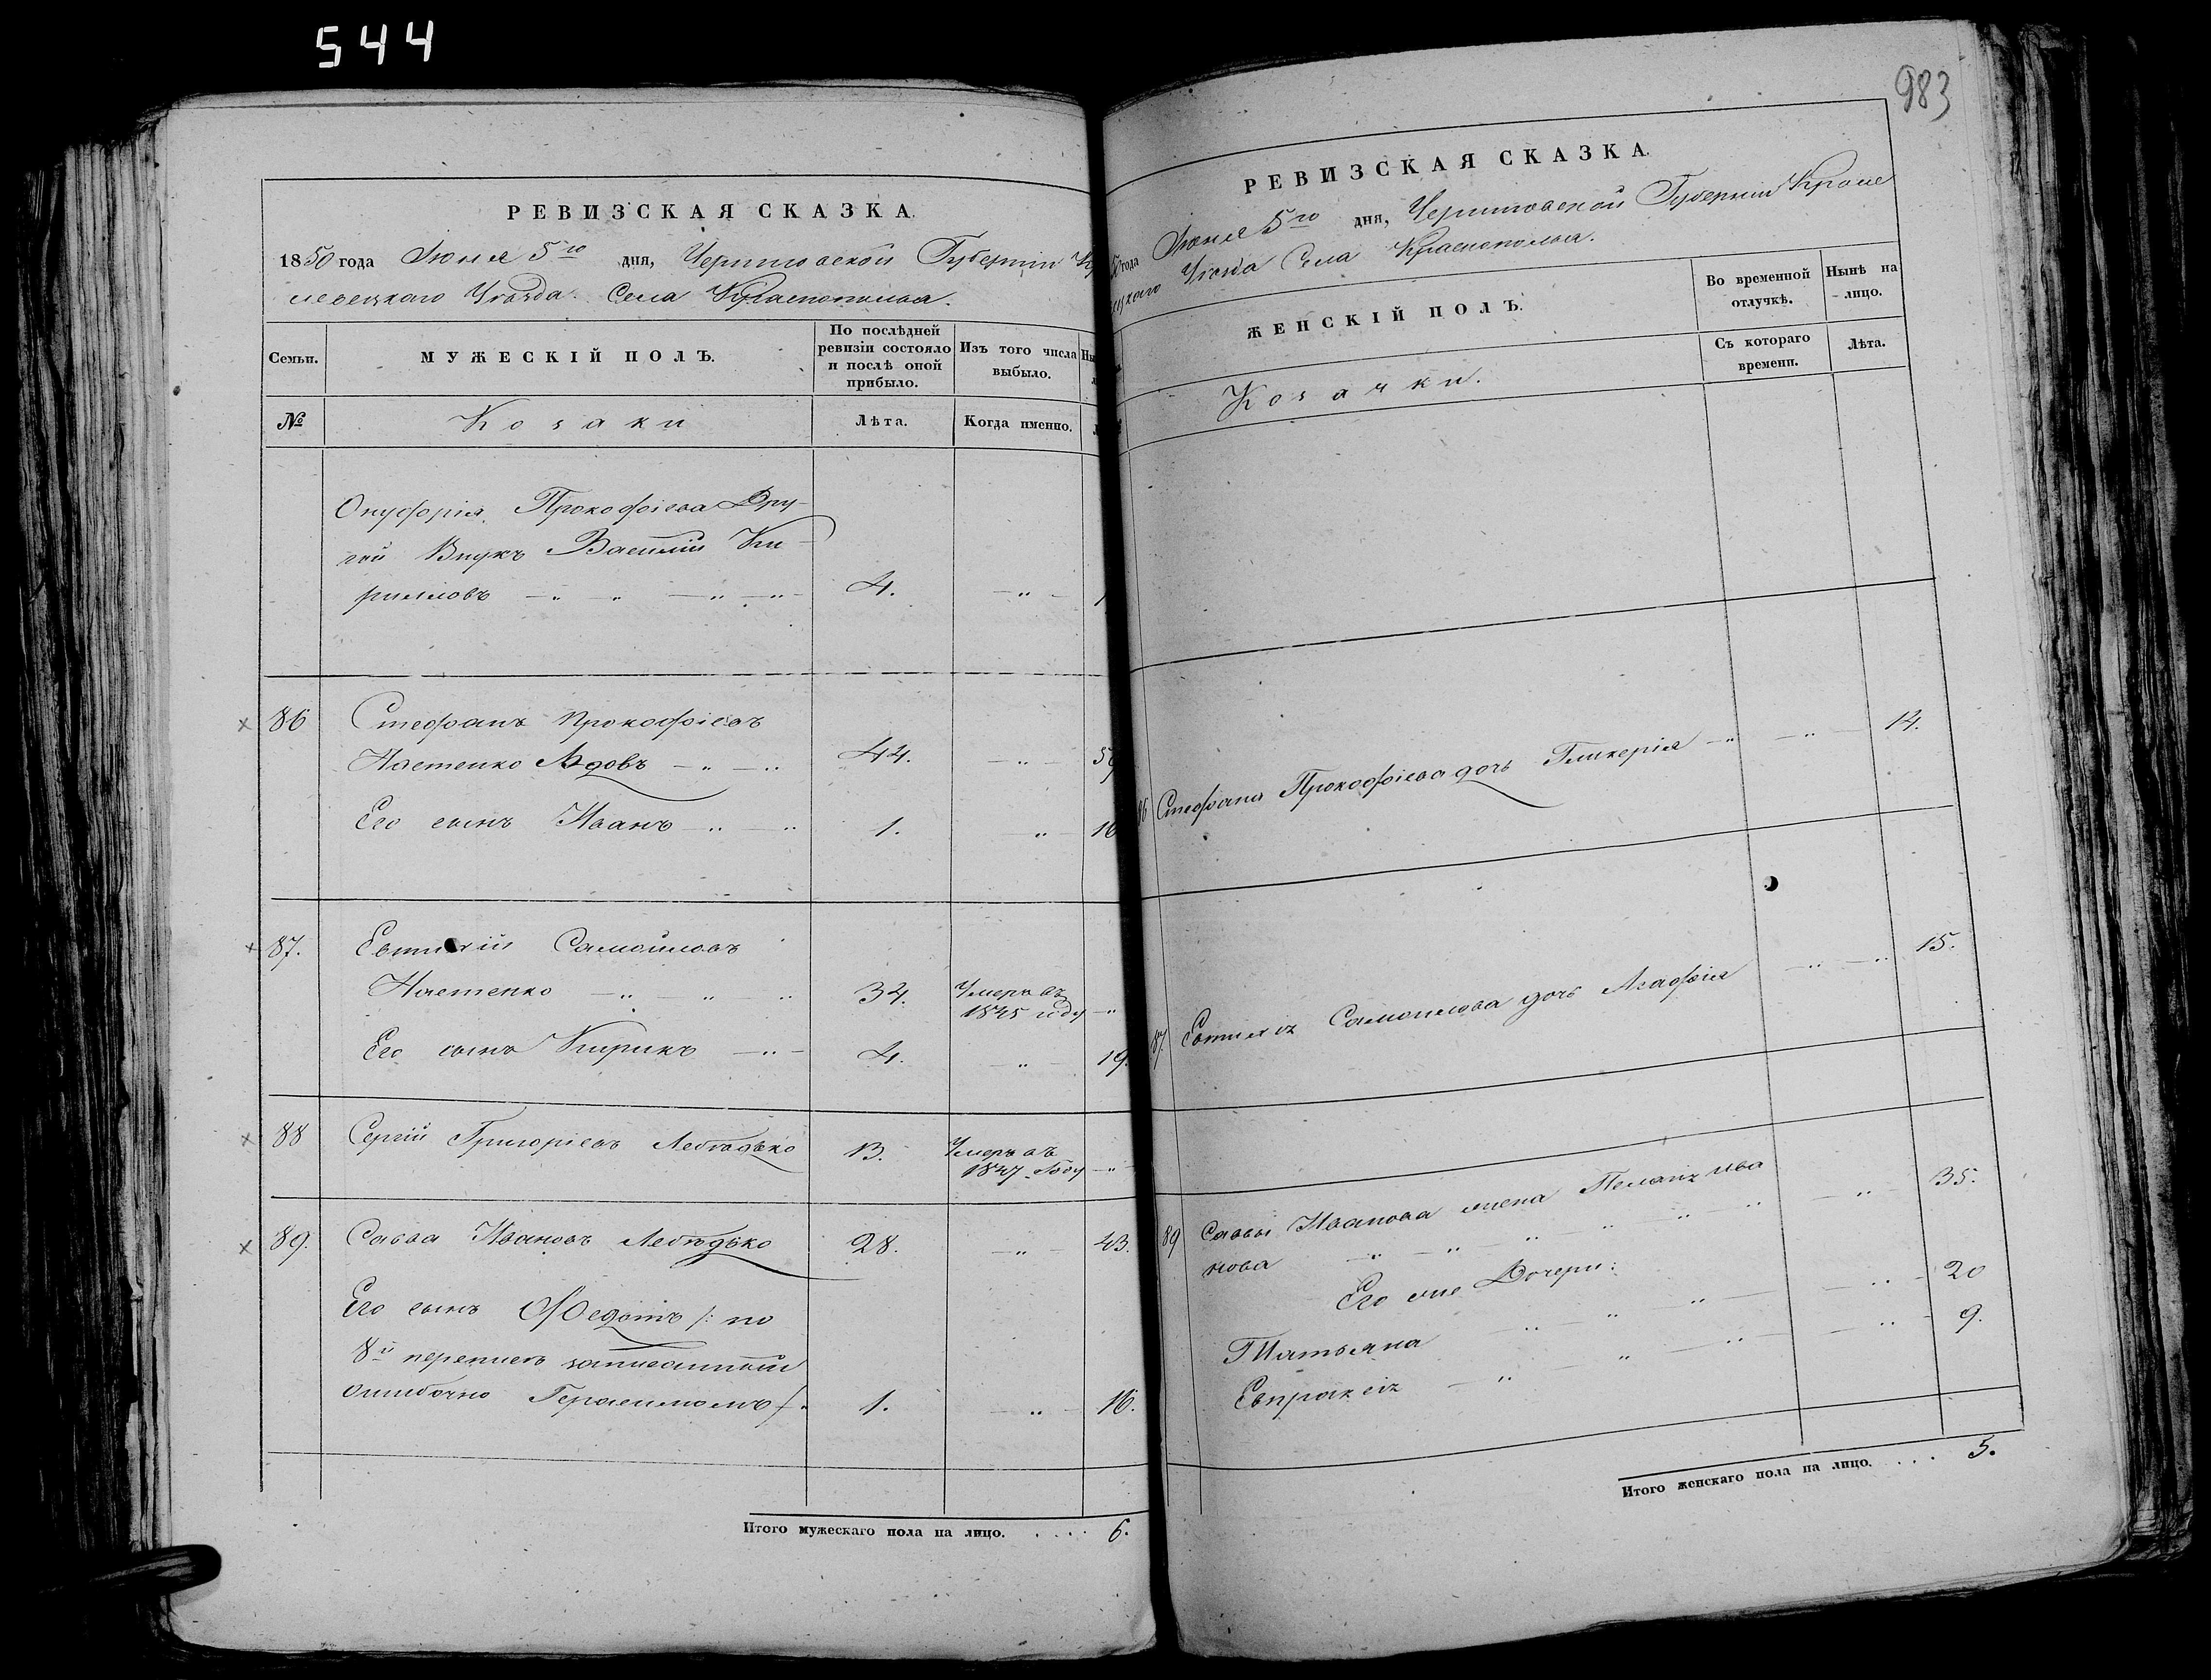 544
РЕВИЗСКАЯ СКАЗКА.
1850 года Июня 5го дня, Черниговской Губерніи
левецкаго Уѣзда. Села Краснополья.
Семьи.
МУЖЕСКІЙ ПОЛЪ.
По послѣдней
ревизіи состояло
и послѣ оной
прибыло.
Изъ того числа
выбыло.
№
Козаки
Лѣта.
Когда именно.
Онуфрія Прокофіева Дру-
гой Внукъ Василій Ки-
рилловъ 4.
86 Стефанъ Прокофіевъ
Настенко Вдовъ 44.
Его сынъ Иванъ 1. 16
87. Евтихій Самойловъ
Настенко 34. Умеръ въ
1845 году
Его сынъ Кирикъ 4. 19.
88 Сергій Григоріевъ Лебѣдько 13. Умеръ въ
1847 Году
89. Савва Ивановъ Лебѣдько 28. 43.
Его сынъ Федотъ /: по
8й переписи записанный
ошибочно Герасимомъ /. 1. 16.
Итого мужескаго пола на лицо. .... 6.
983
РЕВИЗСКАЯ СКАЗКА.
года Июня 5го дня, Черниговской Губерніи Кроле
вецкаго Уѣзда Села Краснополья.
ЖЕНСКІЙ ПОЛЪ.
Во временной
отлучкѣ.
Нынѣ на
лицо.
Съ котораго
времени.
Лѣта.
Козачки.
86 Стефана Прокофіева дочь Гликерія 14.
87 Евтихія Самойлова дочь Агафія 15.
89 Саввы Иванова жена Пелагія Ива
нова 35.
Его же Дочери:
Татьяна 20
Евпраксія 9.
Итого женскаго пола на лицо. .... 5.